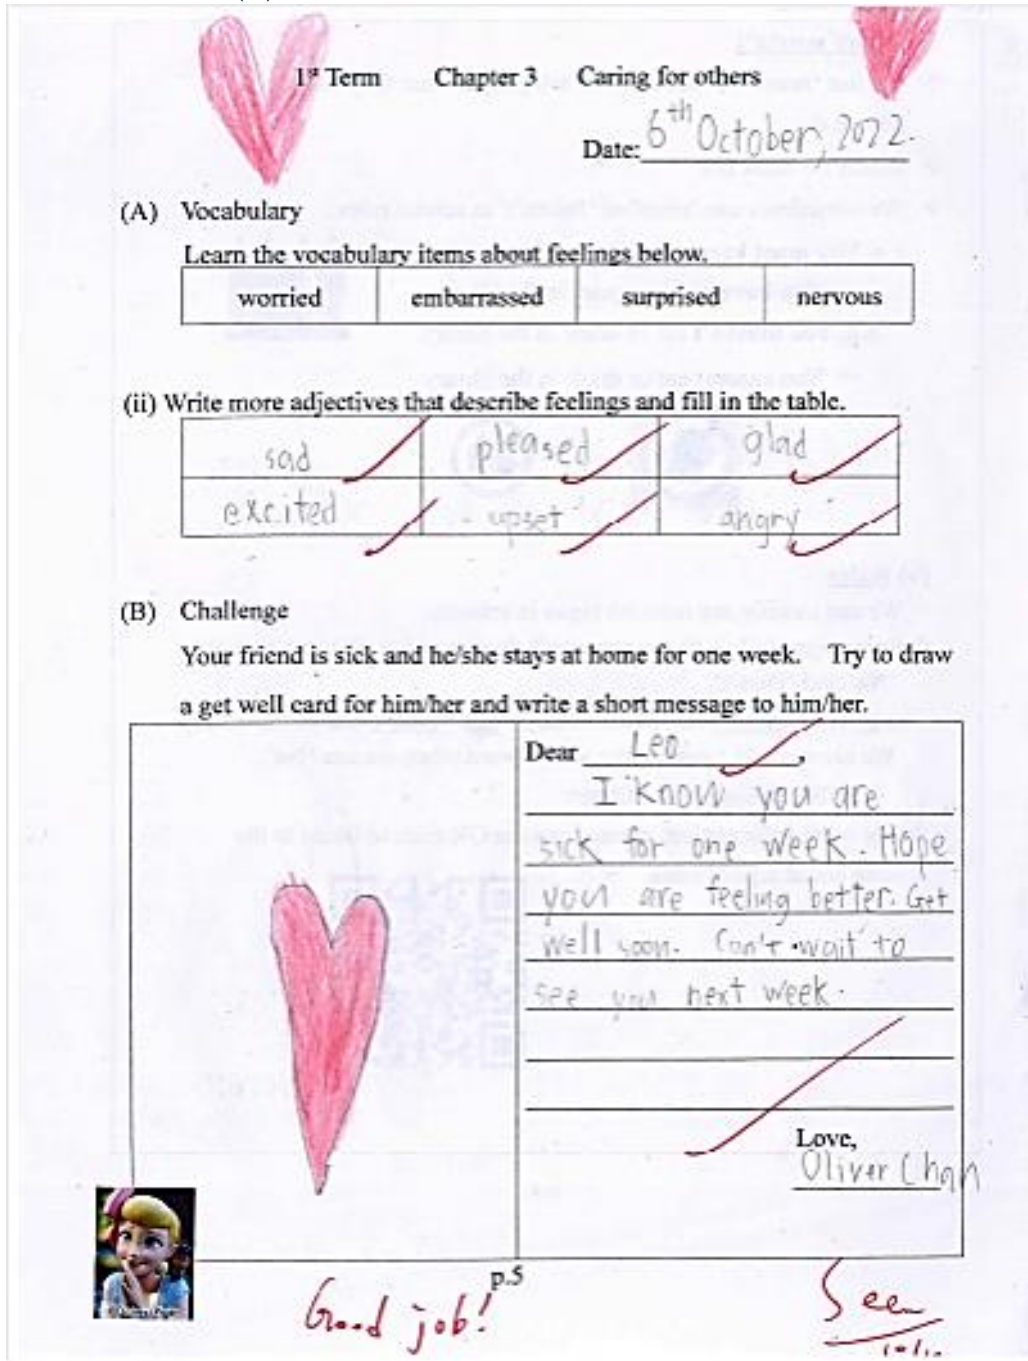 1st Term Chapter 3 Caring for others
Date: 6th October, 2022.
(A) Vocabulary
Learn the vocabulary items about feelings below.
worried embarrassed surprised nervous
(ii) Write more adjectives that describe feelings and fill in the table.
sad pleased glad
excited upset angry
(B) Challenge
Your friend is sick and he/she stays at home for one week. Try to draw
a get well card for him/her and write a short message to him/her.
Dear Leo,
I know you are
sick for one week. Hope
you are feeling better. Get
well soon. Can't wait to
see you next week.
Love,
Oliver Chan
p.5
Good job!
See